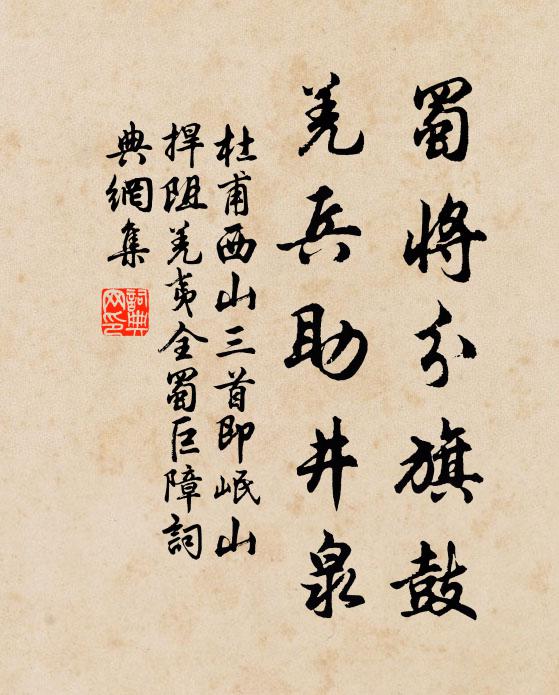 蜀將分旗鼓
羌兵助井泉
杜甫西山三首即岷山
捍阻羌夷全蜀巨障詞
典網集
詞典网印